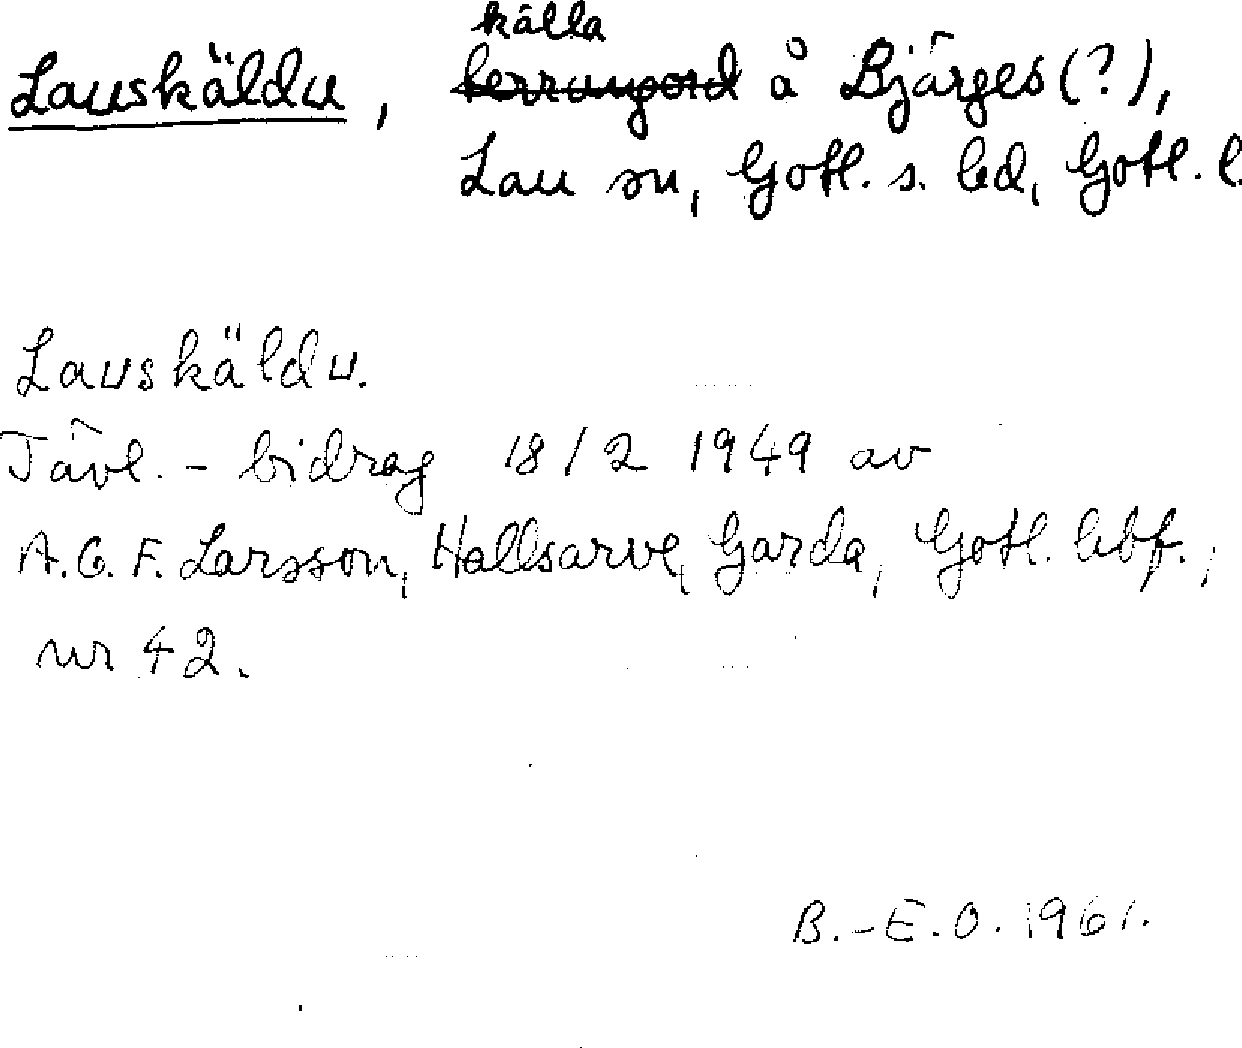 källa
Lauskäldu, terrängord å Bjärges (?),
Lau sn, Gotl. s. hd, Gotl. l.
Lauskäldu.
Tävl.-bidrag 18/2 1949 av
A.G.F. Larsson, Hallsarve, Garda, Gotl. hbf.,
nr 42.
B.-E.O. 1961.